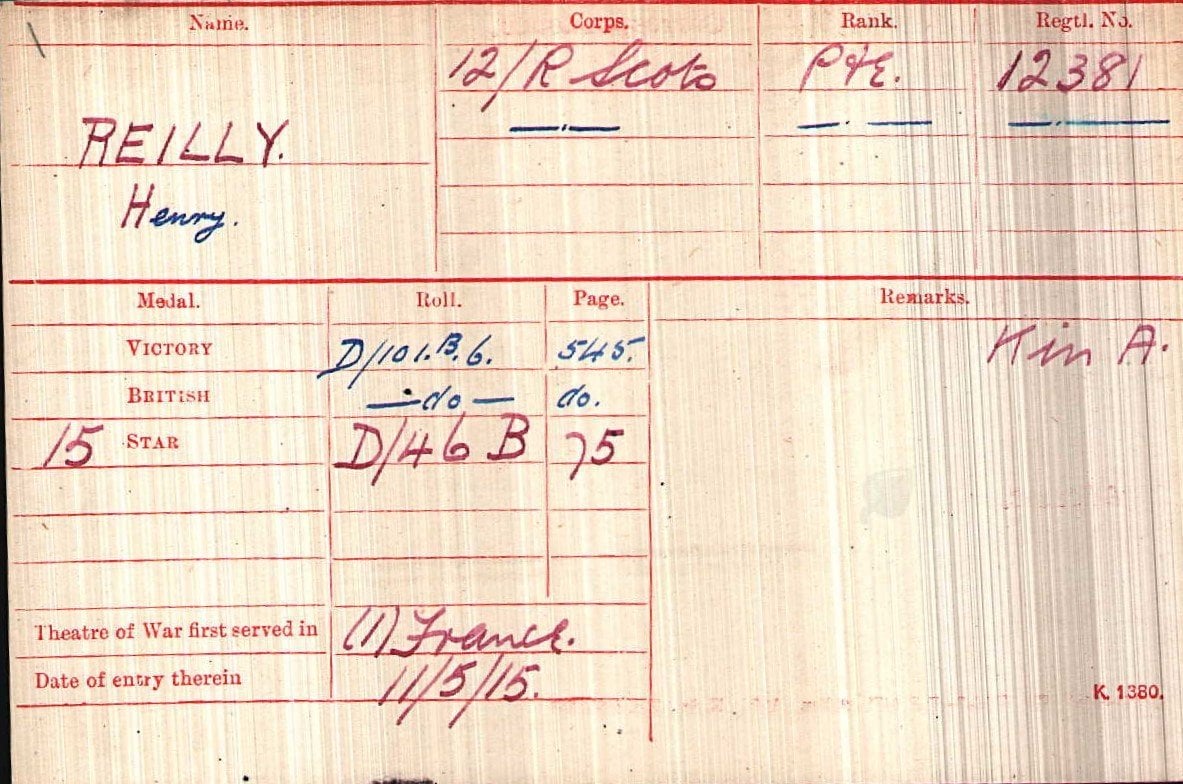 Name. Corps. Rank. Regtl. No.
12/R Scots Pte. 12381
REILLY.
Henry.
Medal. Roll. Page. Remarks.
VICTORY D/101.B.6. 545. K in A.
BRITISH —do— do.
15 STAR D/46 B 75
Theatre of War first served in (1) France.
Date of entry therein 11/5/15.
K. 1380.